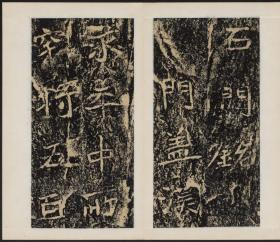 石門銘
門蓋漢
永平中所
穿將五百